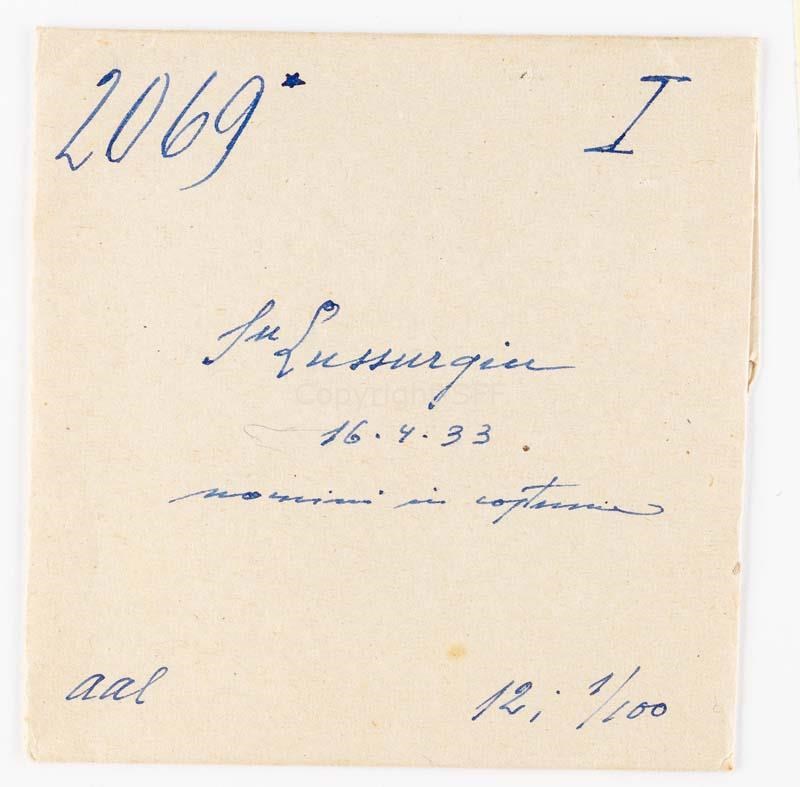 2069* I
Su Lussurgiu
16.4.33
uomini in costume
aal
12; 1/100